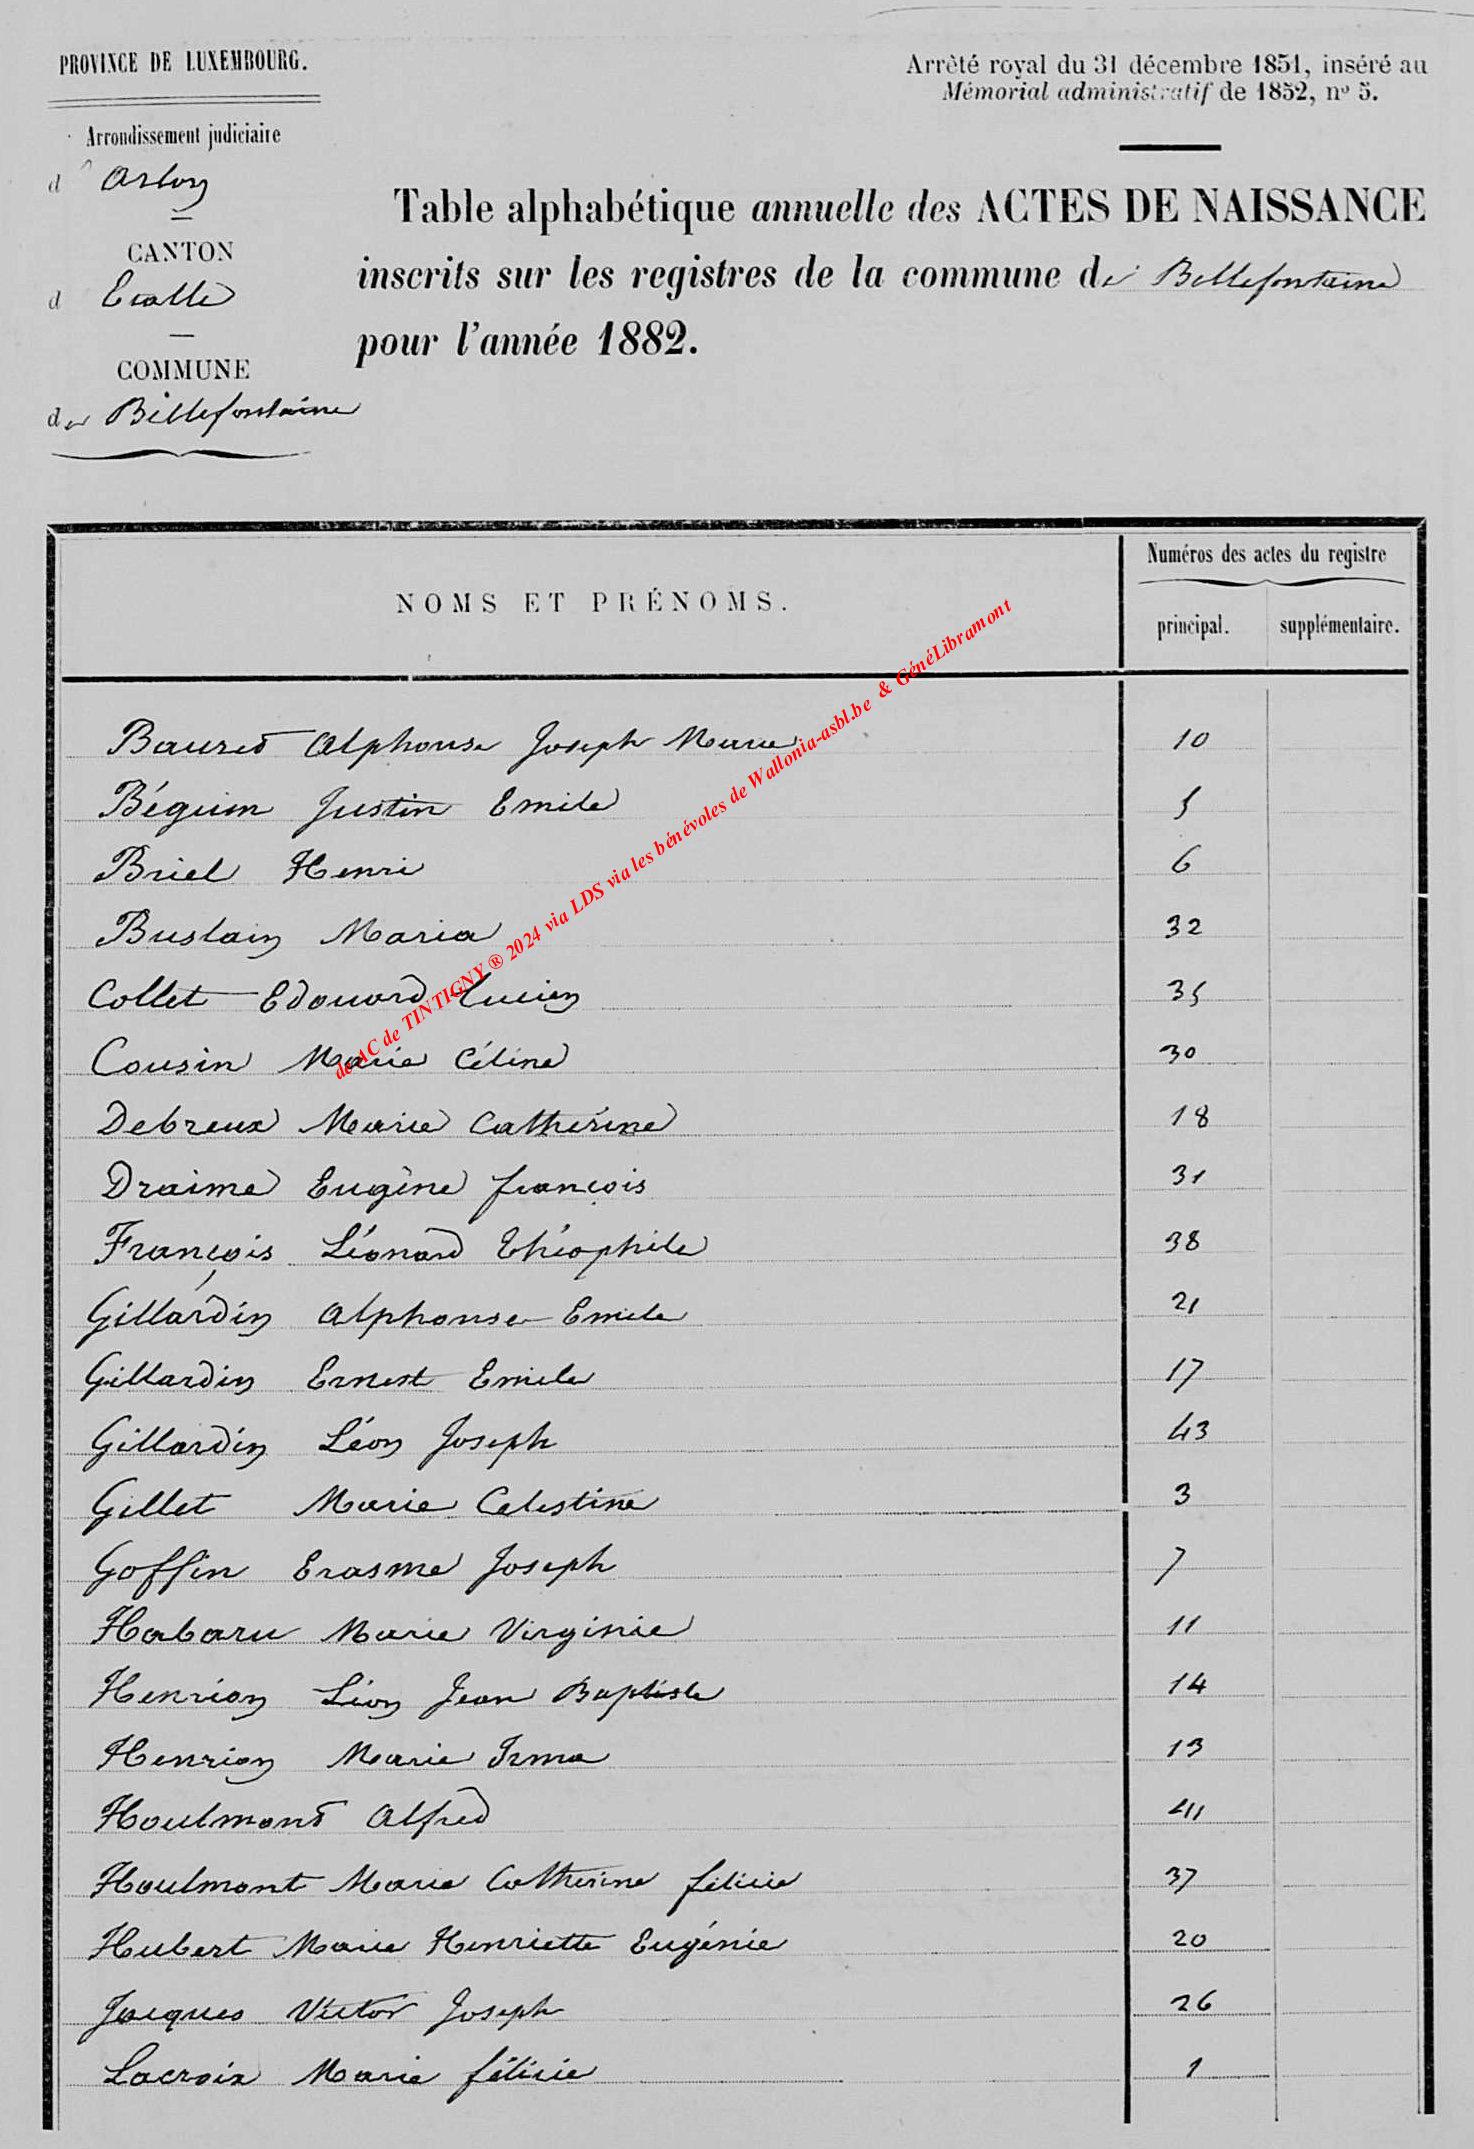 PROVINCE DE LUXEMBOURG.
Arrêté royal du 31 décembre 1851, inséré au
Mémorial administratif de 1852, nº 5.
Arrondissement judiciaire
d'Arlon
CANTON
d'Etalle
COMMUNE
de Bellefontaine
Table alphabétique annuelle des ACTES DE NAISSANCE
inscrits sur les registres de la commune de Bellefontaine
pour l'année 1882.
NOMS ET PRÉNOMS.
Numéros des actes du registre
principal. supplémentaire.
Bauret Alphonse Joseph Marie 10
Béguin Justin Emile 5
Briel Henri 6
Buslain Maria 32
Collet Edouard Lucien 35
Cousin Marie Céline 30
Debreux Marie Catherine 18
Draime Eugène françois 31
François Léonard Théophile 38
Gillardin Alphonse Emile 21
Gillardin Ernest Emile 17
Gillardin Léon Joseph 43
Gillet Marie Celestine 3
Goffin Erasme Joseph 7
Habaru Marie Virginie 11
Henrion Léon Jean Baptiste 14
Henrion Marie Irma 13
Houlmont Alfred 41
Houlmont Marie Catherine félicie 37
Hubert Marie Henriette Eugénie 20
Jacques Victor Joseph 26
Lacroix Marie félicie 1
de AC de TINTIGNY ® 2024 via LDS via les bénévoles de Wallonia-asbl.be & GénéLibramont